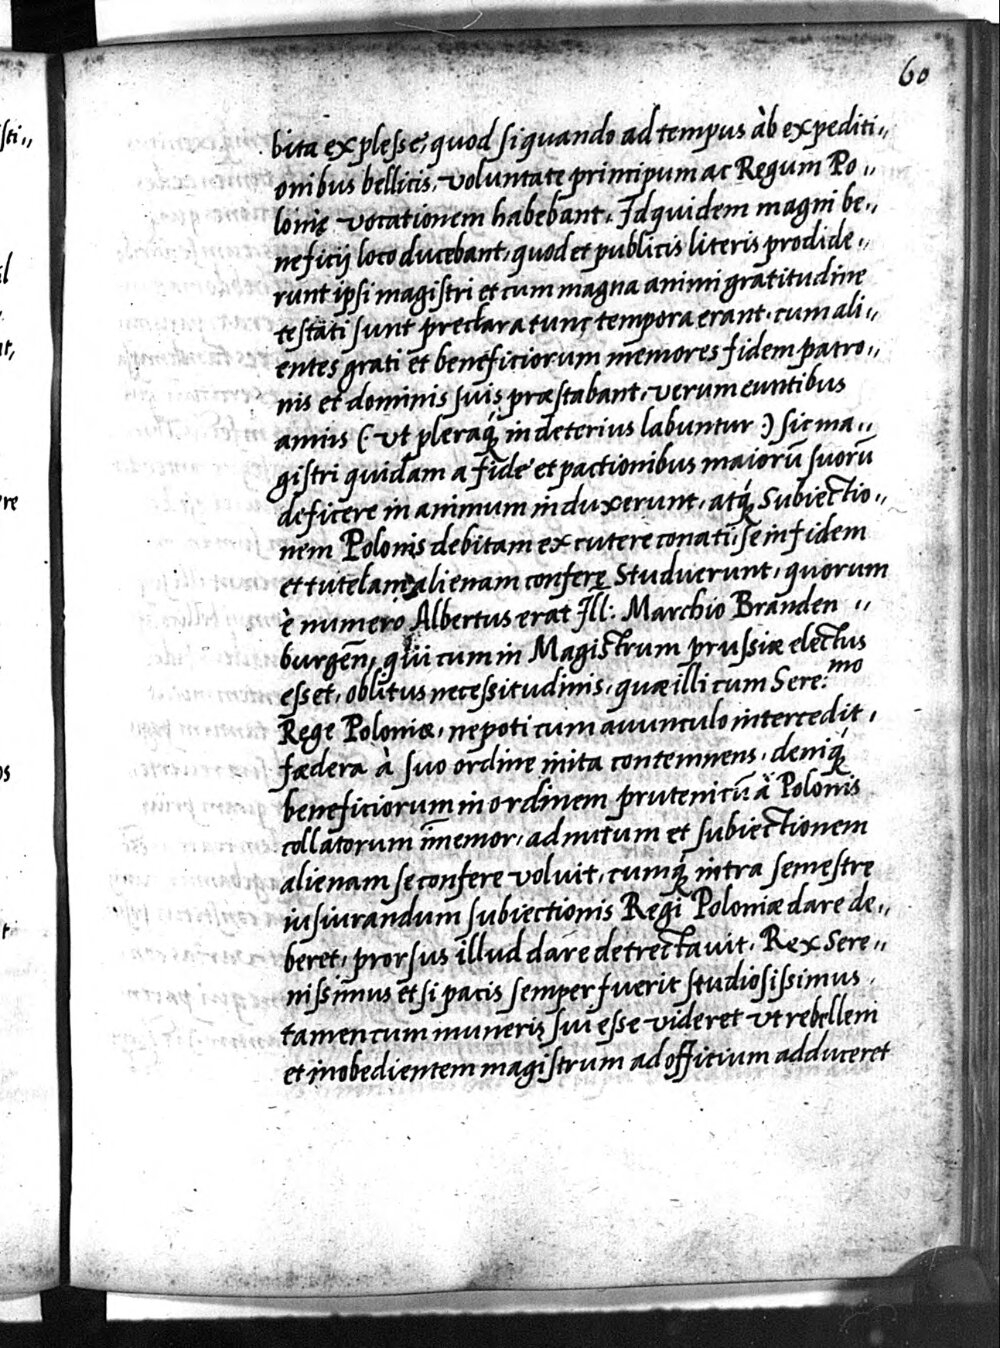 60
bita explesse, quod si quando ad tempus àb expediti„
onibus bellicis, voluntate principum ac Regum Po„
lonię vocationem habebant, Id quidem magni be„
neficij loco ducebant, quod et publicis literis prodide„
runt ipsi magistri et cum magna animi gratitudine
testati sunt preclara tunc tempora erant, cum ali„
entes grati et beneficiorum memores fidem patro„
nis et dominis suis præstabant, verum euntibus
annis (: ut pleraq́ in deterius labuntur :) sic ma„
gistri quidam a fide et pactionibus maiorū suorū
deficere in animum induxerunt, atq́ Subiectio„
nem Polonis debitam excutere conati, se in fidem
et tutelam alienam conferę Studuerunt, quorum
è numero Albertus erat Ill: Marchio Branden„
burgēn, qui cum in Magistrum prussiæ electus
esset, oblitus necessitudinis, quæ illi cum Sere:mo
Rege Poloniæ, nepoti cum avunculo intercedit,
fædera à suo ordine inita contemnens, deniq́
beneficiorum in ordinem prutenicū à Polonis
collatorum īmemor, ad nutum et subiectionem
alienam se confere voluit, cumq́ intra semestrę
iusiurandum subiectionis Regi Poloniæ dare de„
beret, prorsus illud dare detrectavit, Rex Sere„
nissimus etsi pacis semper fuerit studiosissimus,
tamen cum muneris sui esse videret ut rebellem
et inobedientem magistrum ad officium adduceret